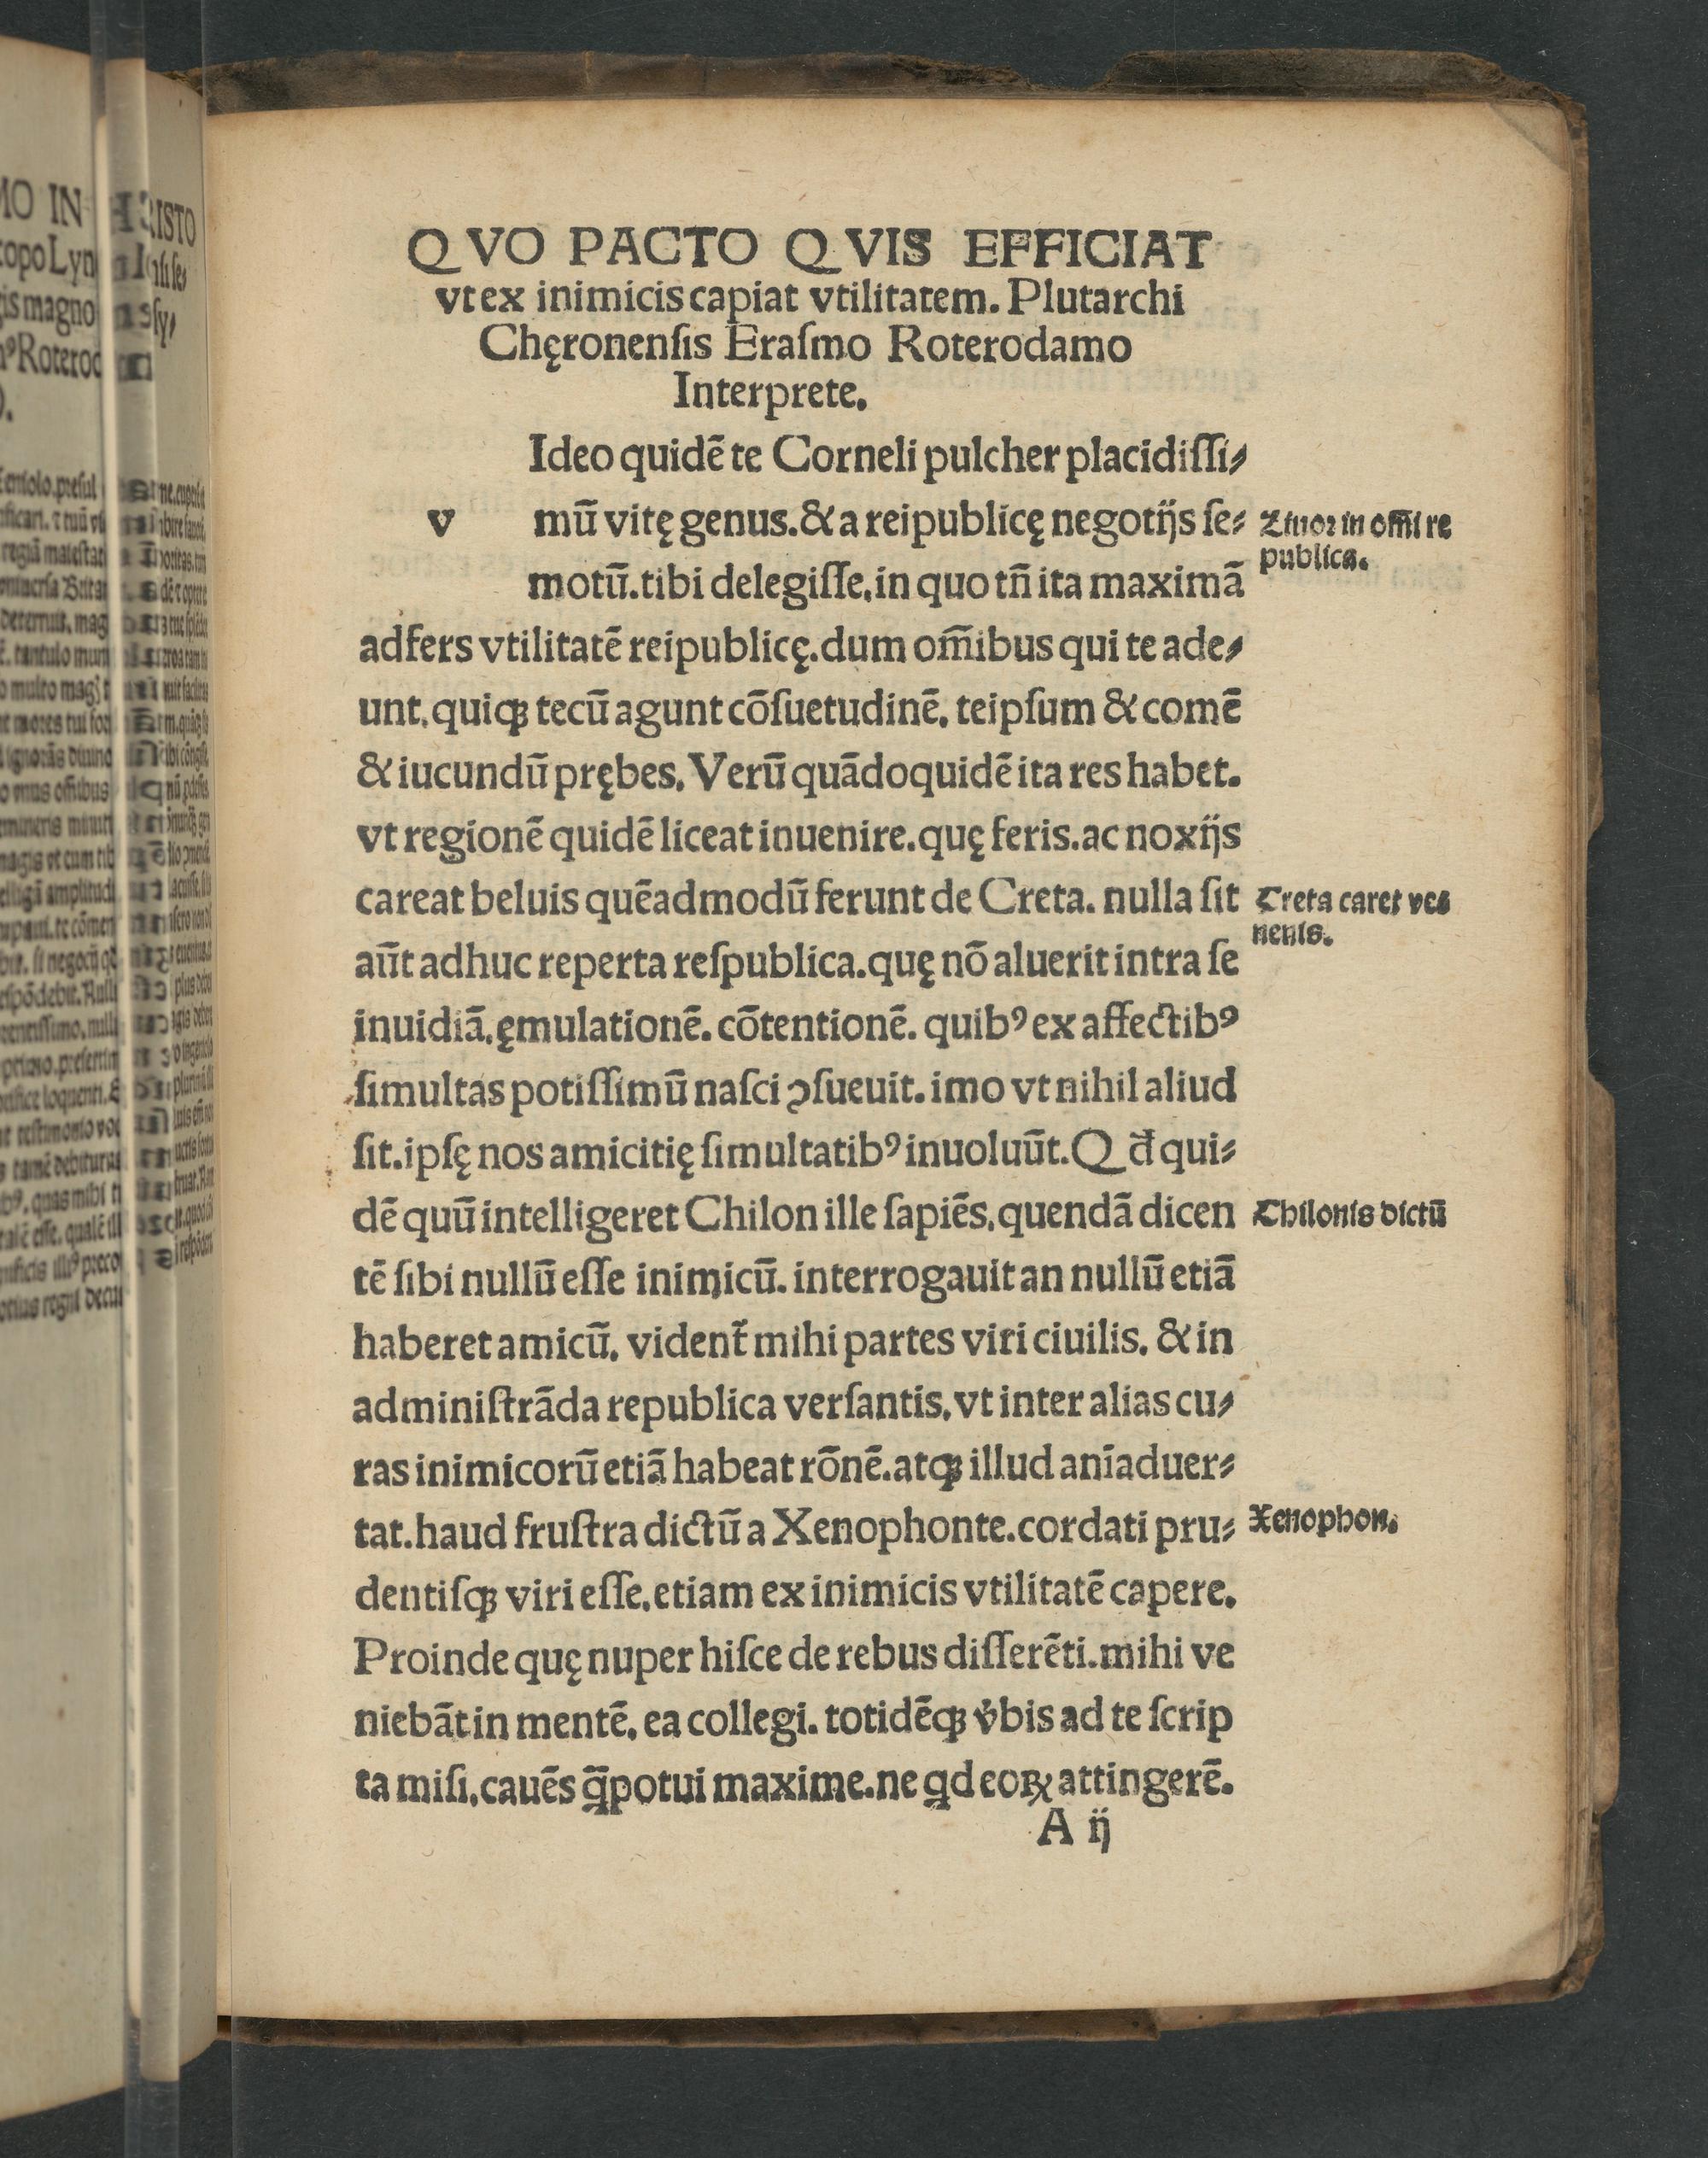 QVO PACTO QVIS EFFICIAT
vt ex inimicis capiat vtilitatem. Plutarchi
Chęronenſis Eraſmo Roterodamo
Interprete.
Ideo quidē te Corneli pulcher placidiſſi⸗
v mū vitę genus.& a reipublicę negotijs ſe⸗
motū.tibi delegiſſe,in quo tñ ita maximā
adfers vtilitatē reipublicę.dum om̄ibus qui te ade⸗
unt,quiqꝫ tecū agunt cōſuetudinē, teipſum & comē
& iucundū prębes, Verū quādoquidē ita res habet.
vt regionē quidē liceat inuenire.quę feris.ac noxijs
careat beluis quēadmodū ferunt de Creta. nulla ſit
aūt adhuc reperta reſpublica.quę nō aluerit intra ſe
inuidiā,ęmulationē. cōtentionē. quibꝰ ex affectibꝰ
ſimultas potiſſimū naſci ↄſueuit. imo vt nihil aliud
ſit.ipſę nos amicitię ſimultatibꝰ inuoluūt.Qđ qui⸗
dē quū intelligeret Chilon ille ſapiēs,quendā dicen
tē ſibi nullū eſſe inimicū. interrogauit an nullū etiā
haberet amicū, vident̄ mihi partes viri ciuilis, & in
adminiſtrāda republica verſantis,vt inter alias cu⸗
ras inimicorū etiā habeat rōnē.atqꝫ illud anīaduer⸗
tat.haud fruſtra dictū a Xenophonte.cordati pru⸗
dentiſqꝫ viri eſſe,etiam ex inimicis vtilitatē capere,
Proinde quę nuper hiſce de rebus diſſerēti.mihi ve
niebāt in mentē, ea collegi. totidēqꝫ v̓bis ad te ſcrip
ta miſi,cauēs q̄̃potui maxime.ne qd eoꝝ attingerē.
A ij
Liuor in om̄i re
publica.
Creta caret ve⸗
nenis.
Chilonis dictū
Xenophon.